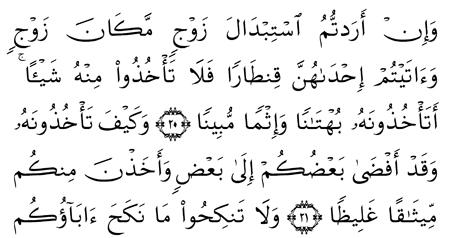 وَإِنْ أَرَدتُّمُ ٱسْتِبْدَالَ زَوْجٍ مَّكَانَ زَوْجٍ
وَءَاتَيْتُمْ إِحْدَىٰهُنَّ قِنطَارًا فَلَا تَأْخُذُوا۟ مِنْهُ شَيْـًٔا ۚ
أَتَأْخُذُونَهُۥ بُهْتَـٰنًا وَإِثْمًا مُّبِينًا ﴿٢٥﴾ وَكَيْفَ تَأْخُذُونَهُۥ
وَقَدْ أَفْضَىٰ بَعْضُكُمْ إِلَىٰ بَعْضٍ وَأَخَذْنَ مِنكُم
مِّيثَـٰقًا غَلِيظًا ﴿٢١﴾ وَلَا تَنكِحُوا۟ مَا نَكَحَ ءَابَآؤُكُم